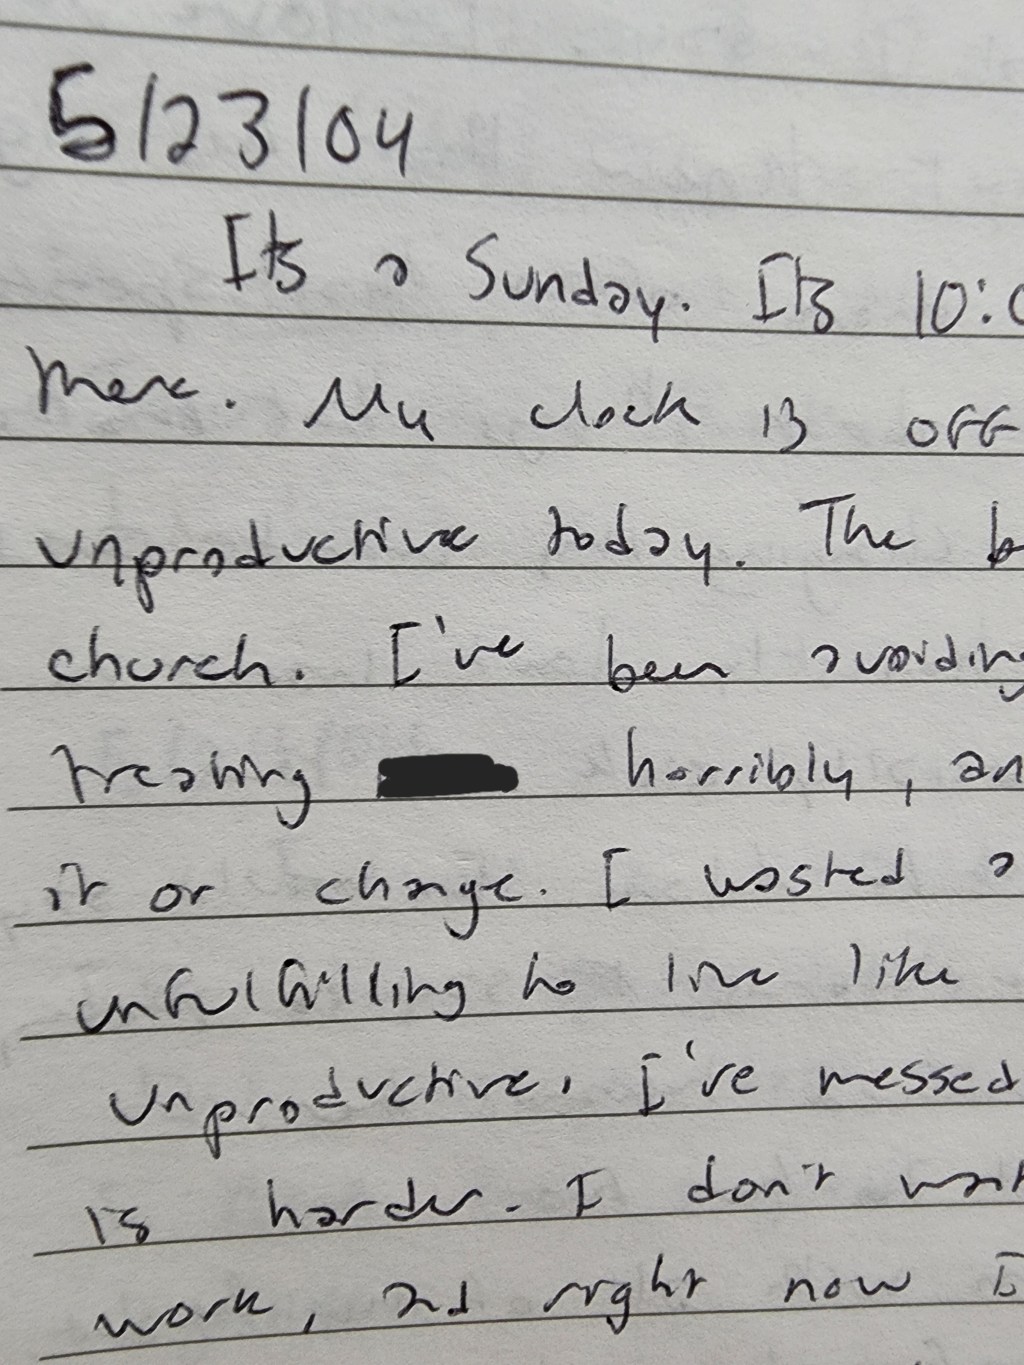 5/23/04
Its a Sunday. Its 10:0
there. My clock is off
unproductive today. The b
church. I've been avoiding
treating horribly, an
it or change. I wasted a
unfulfilling to live like
unproductive. I've messed
is harder. I don't want
work, and right now I